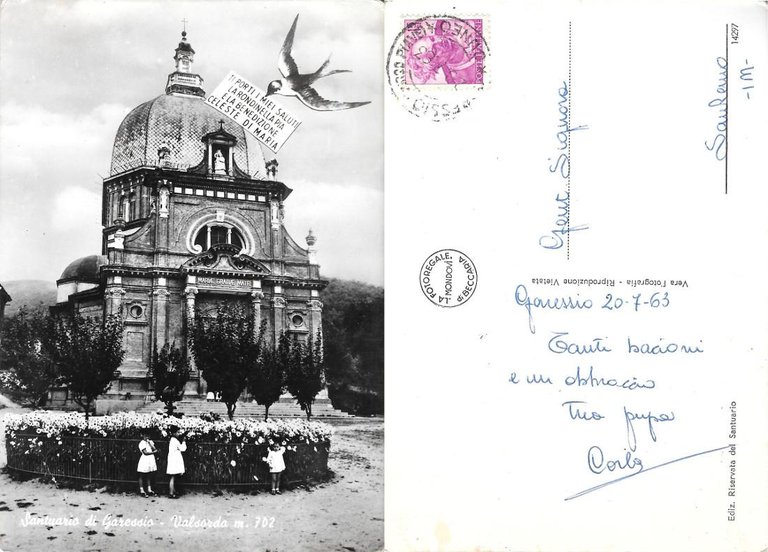 TI PORTI I MIEI SALUTI
LA RONDINELLA PIA
E LA BENEDIZIONE
CELESTE DI MARIA
MARIAE GRATIAE MATRI
Santuario di Garessio - Valsorda m. 702
14297
Sanremo
- IM -
Gent Signora
LA FOTOREGALE
di BECCARIA
MONDOVI'
Vera Fotografia - Riproduzione Vietata
Garessio 20-7-63
Tanti bacioni
e un abbraccio
tua pupa
Carla
Ediz. Riservata del Santuario